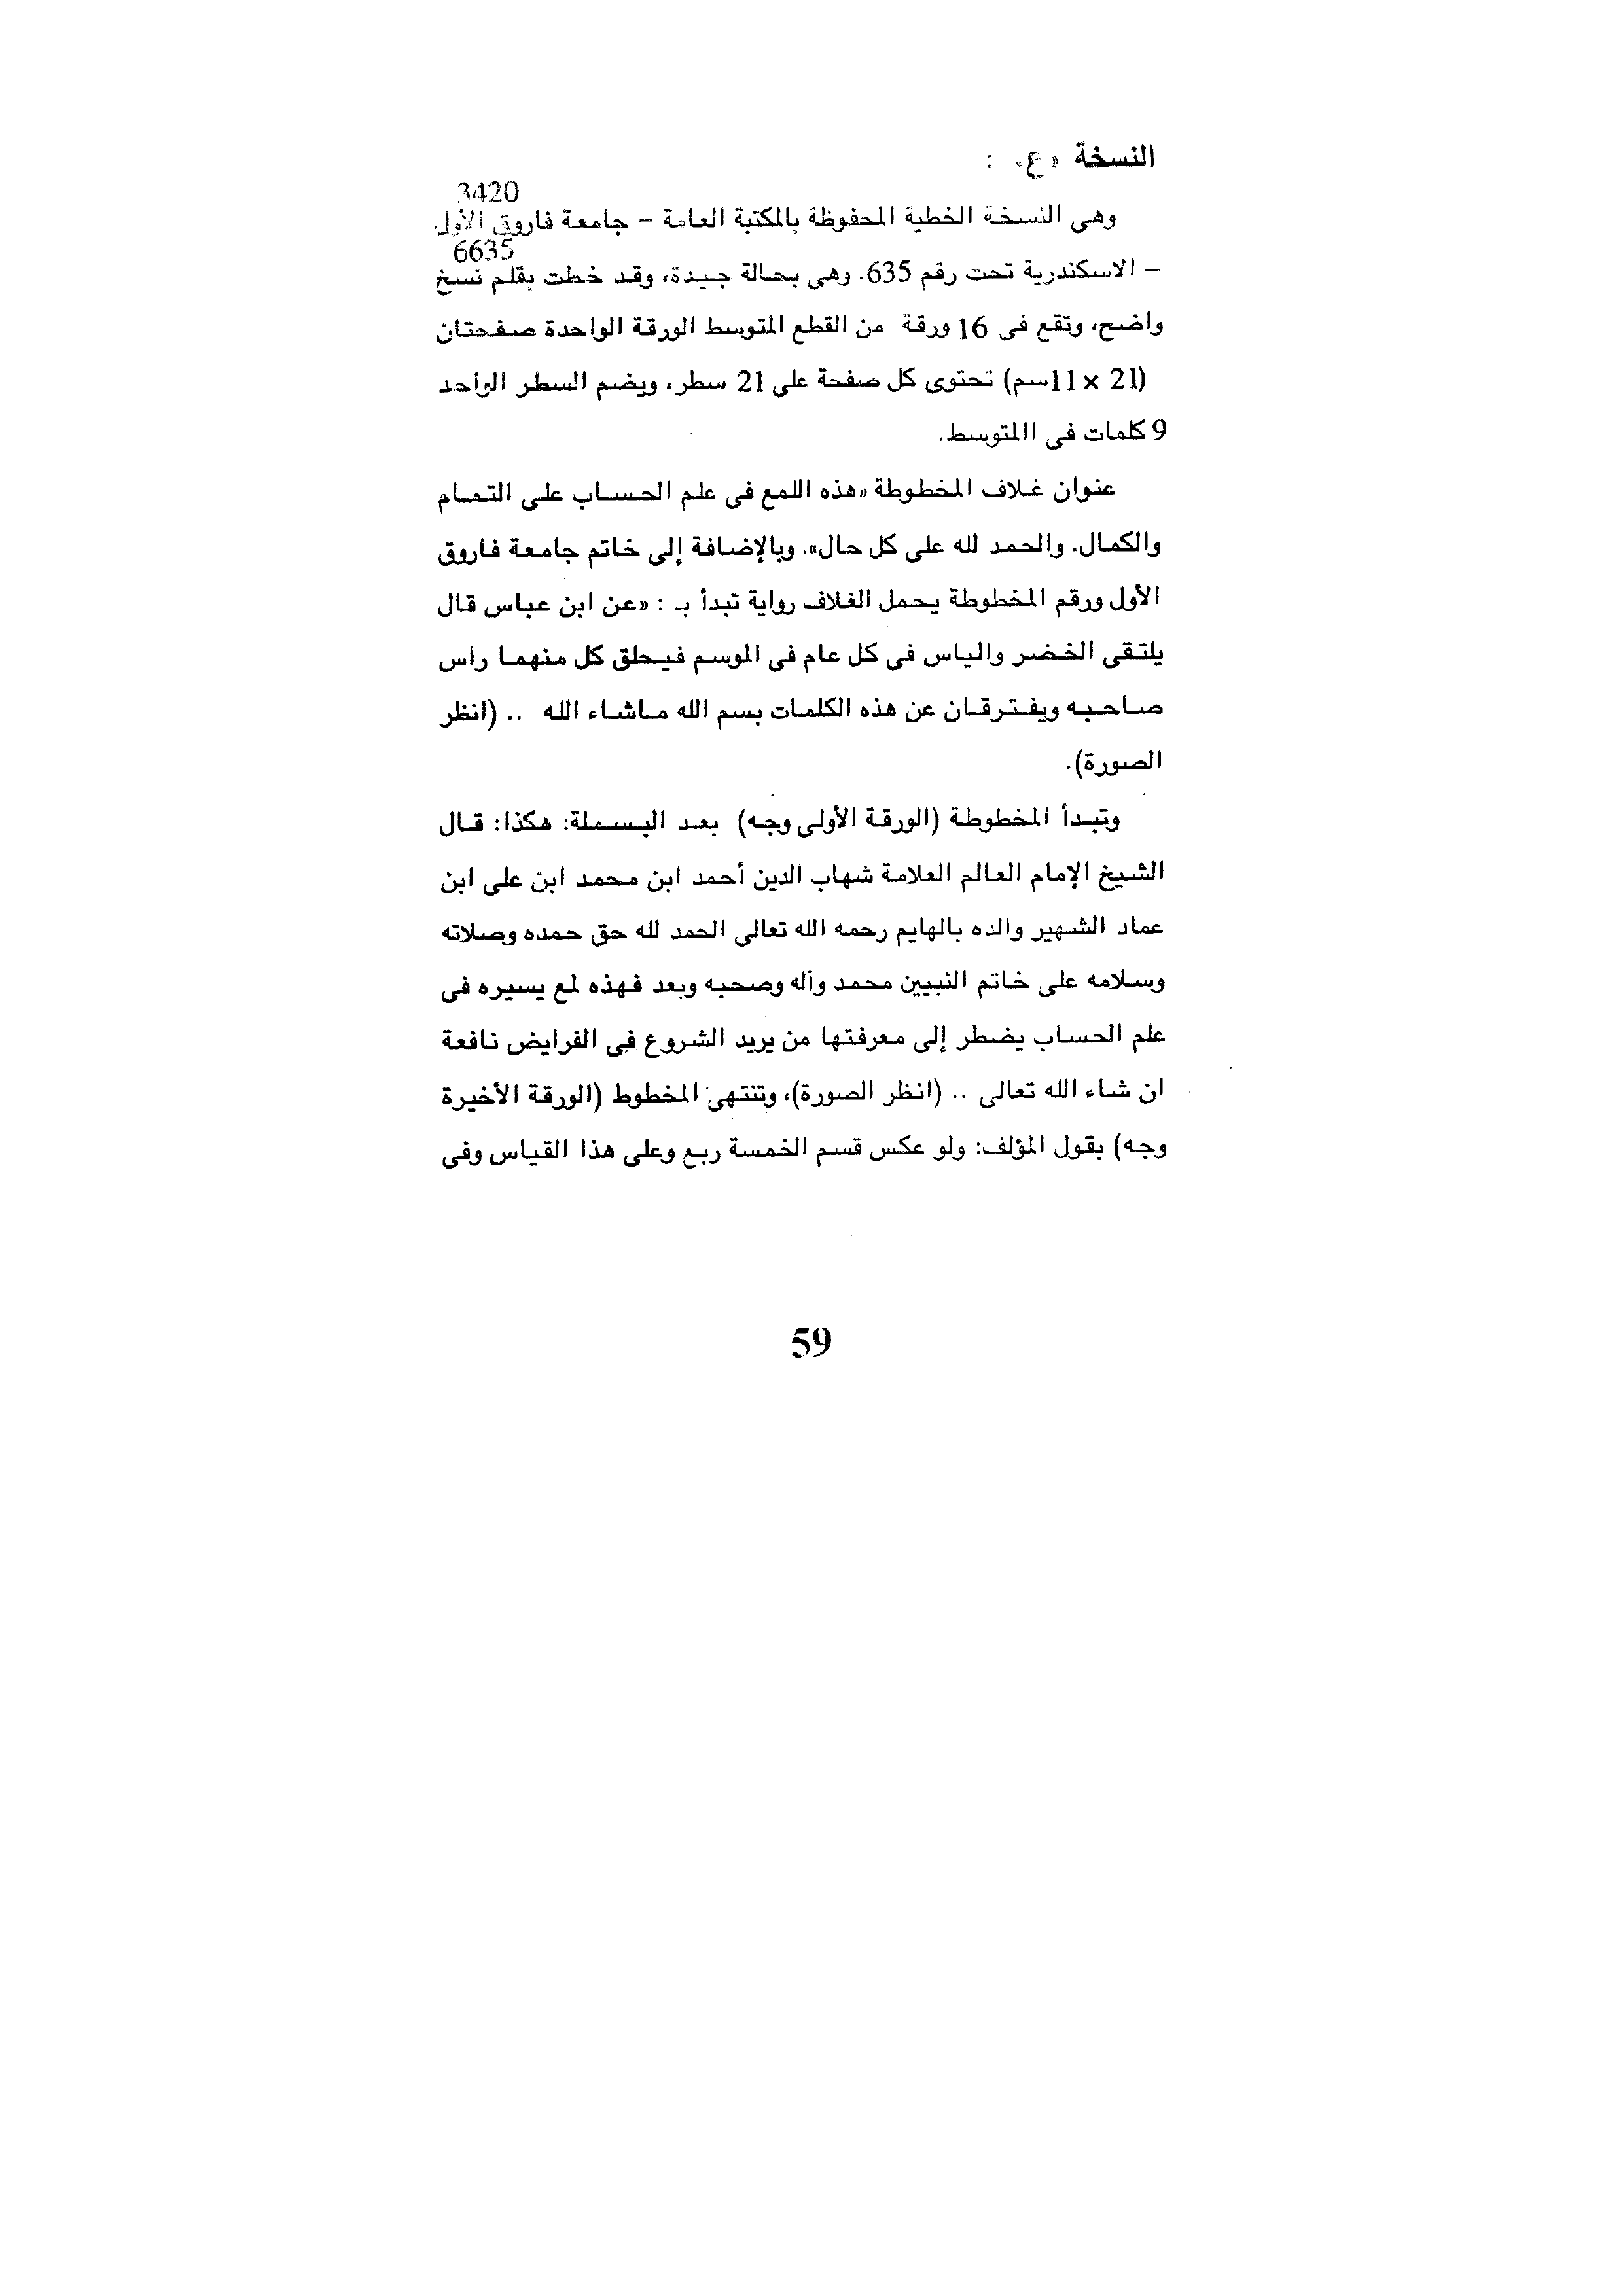 النسخة «ع» :
3420
وهى النسخة الخطية المحفوظة بالمكتبة العامة – جامعة فاروق الأول
6635
– الاسكندرية تحت رقم 635. وهى بحالة جيدة، وقد خطت بقلم نسخ
واضح، وتقع فى 16 ورقة من القطع المتوسط الورقة الواحدة صفحتان
(21 × 11سم) تحتوى كل صفحة على 21 سطر، ويضم السطر الواحد
9 كلمات فى االمتوسط.
عنوان غلاف المخطوطة «هذه اللمع فى علم الحساب على التمام
والكمال. والحمد لله على كل حال». وبالإضافة إلى خاتم جامعة فاروق
الأول ورقم المخطوطة يحمل الغلاف رواية تبدأ بـ : «عن ابن عباس قال
يلتقى الخضر والياس فى كل عام فى الموسم فيحلق كل منهما راس
صاحبه ويفترقان عن هذه الكلمات بسم الله ماشاء الله .. (انظر
الصورة).
وتبدأ المخطوطة (الورقة الأولى وجه) بعد البسملة: هكذا: قال
الشيخ الإمام العالم العلامة شهاب الدين أحمد ابن محمد ابن على ابن
عماد الشهير والده بالهايم رحمه الله تعالى الحمد لله حق حمده وصلاته
وسلامه على خاتم النبيين محمد وآله وصحبه وبعد فهذه لمع يسيره فى
علم الحساب يضطر إلى معرفتها من يريد الشروع فى الفرايض نافعة
ان شاء الله تعالى .. (انظر الصورة)، وتنتهى المخطوط (الورقة الأخيرة
وجه) بقول المؤلف: ولو عكس قسم الخمسة ربع وعلى هذا القياس وفى
59